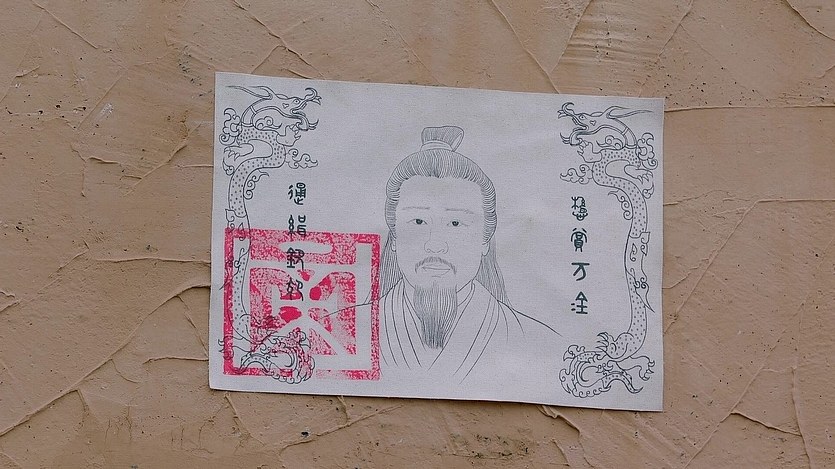 通緝欽犯
懸賞万金